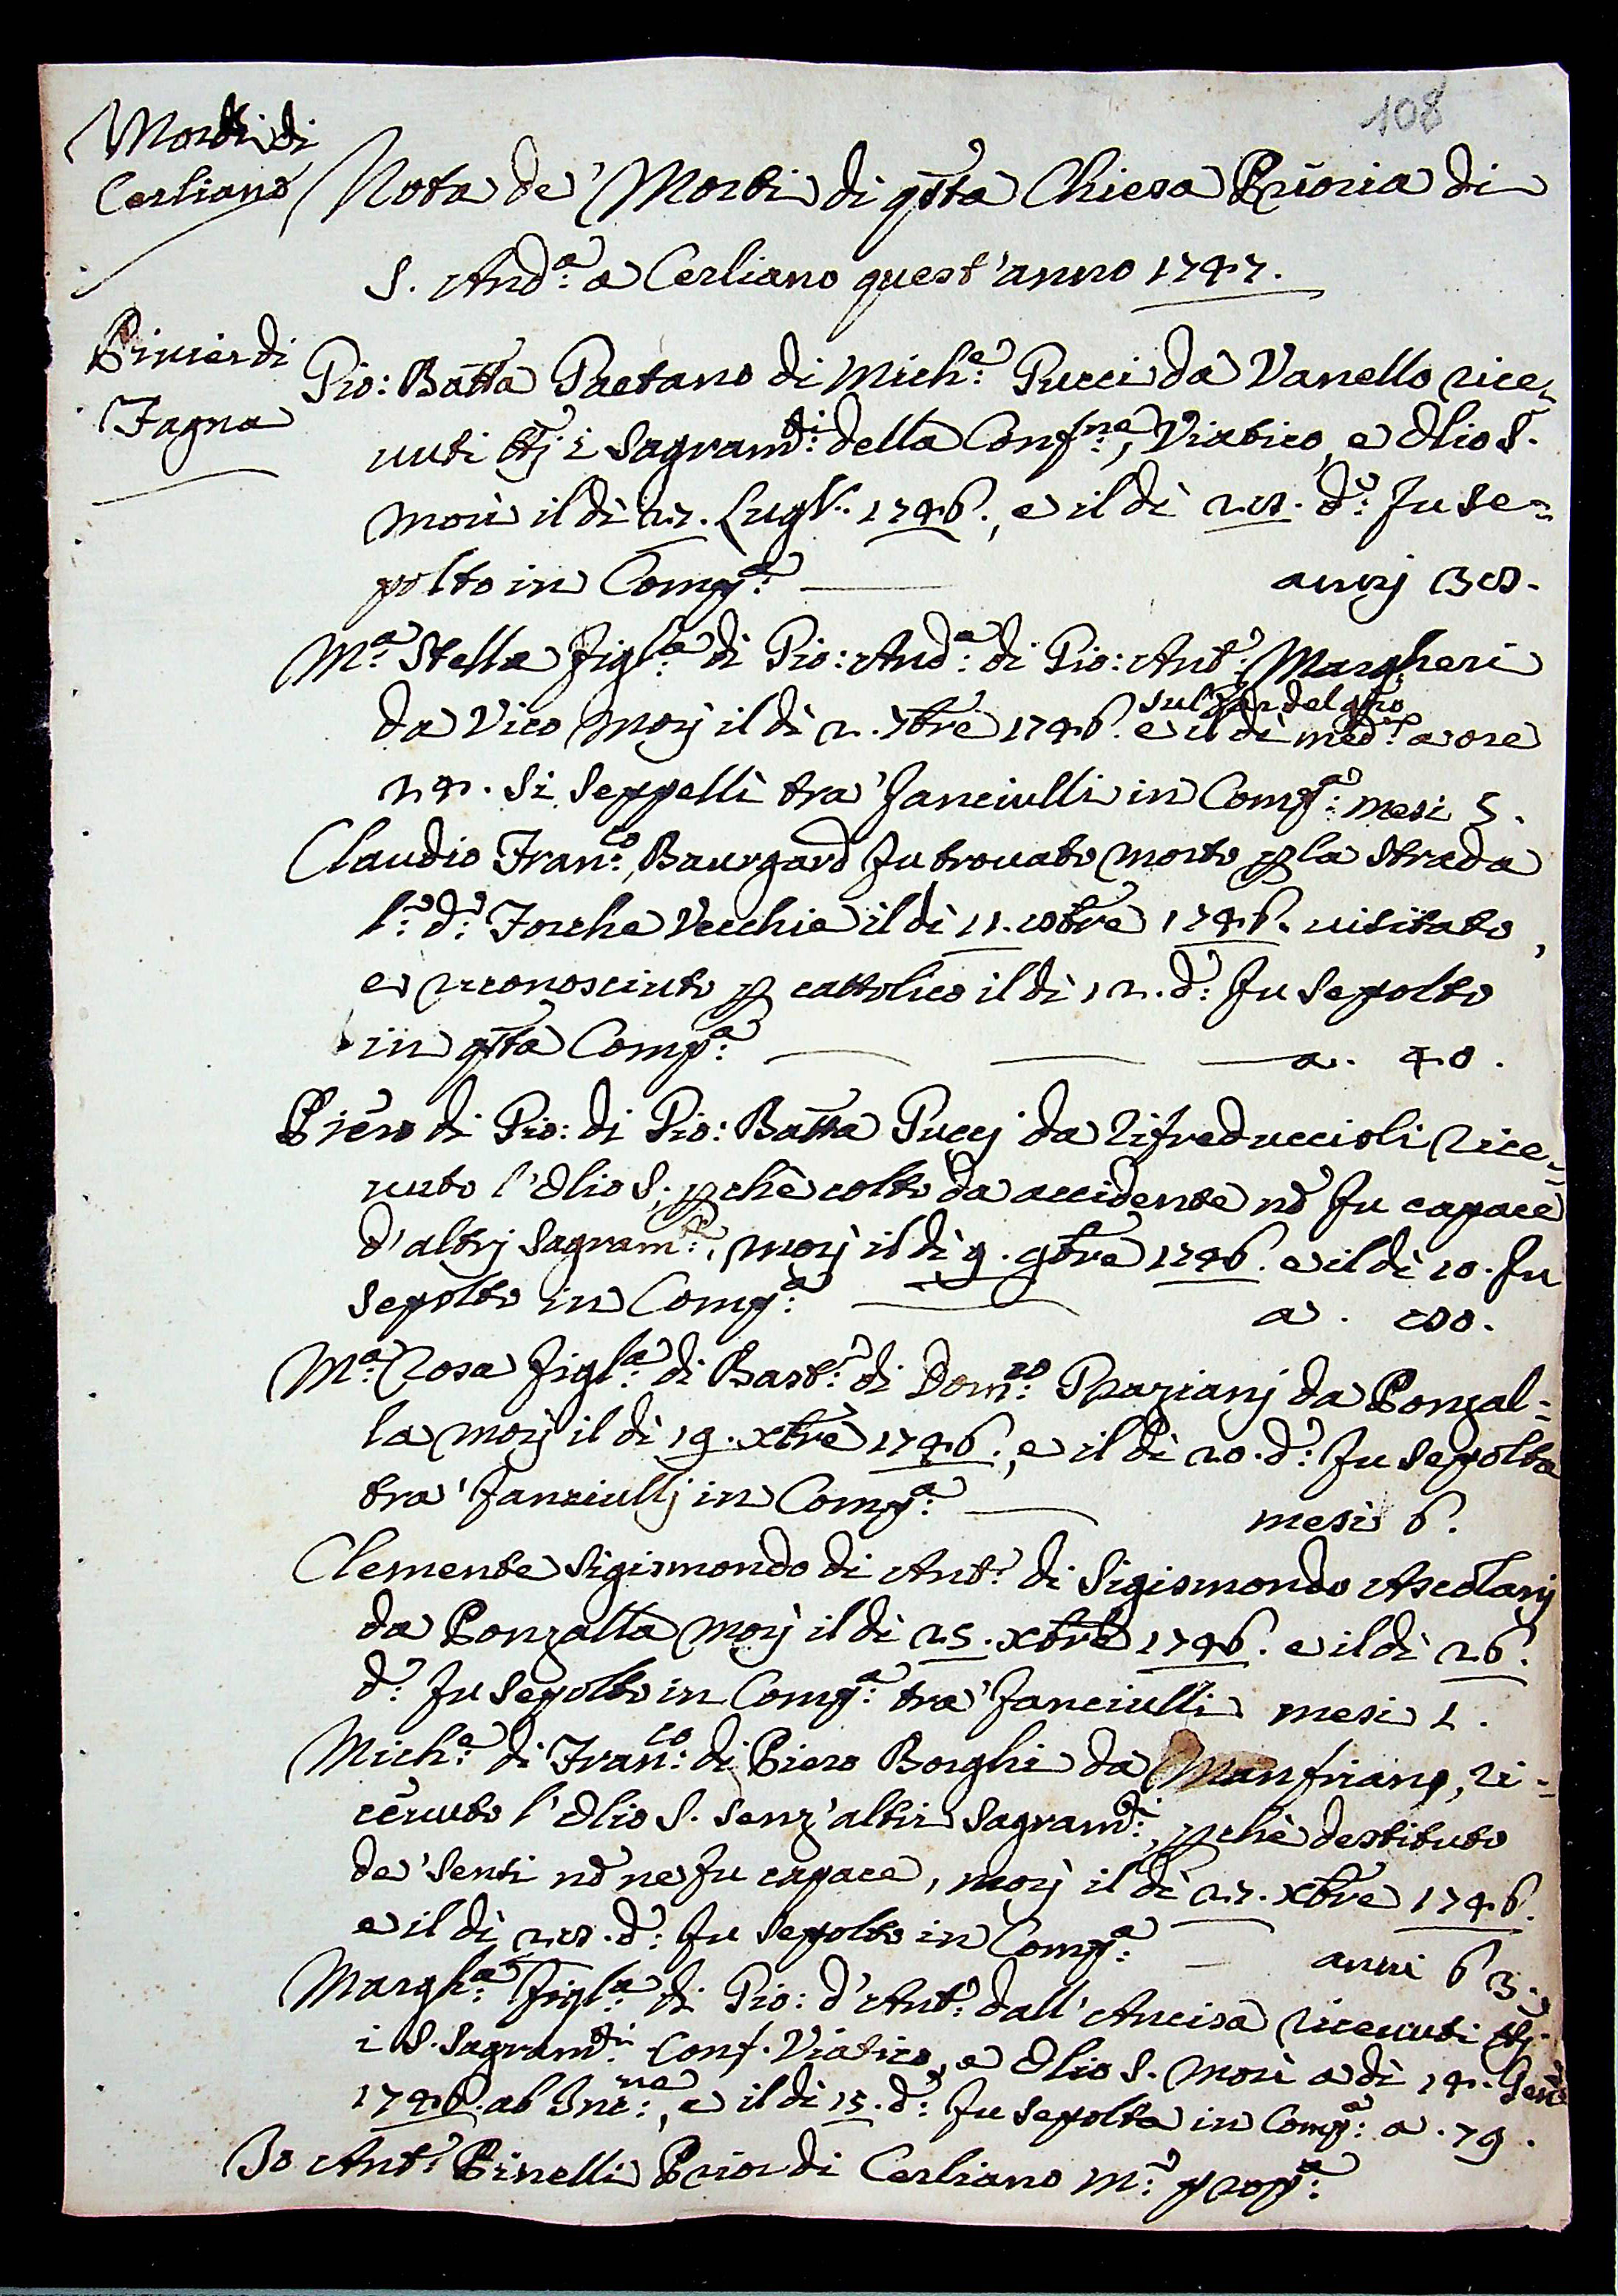 108
Morti di
Cerliano
Nota de' Morti di qsta Chiesa Prioria di
S. And.ª a Cerliano quest'anno 1747.
Pivier di
Fagna
Gio: Batta Gaetano di Mich.e Pucci da Vanello rice-
vuti tti i Sagram.ti della Conf.ne, Viatico, e Olio S.
morì il dì 27. Lugl. 1746., e il dì 28. d.º fu se=
polto in Comp.ª anni 38.
M.ª Stella figl.ª di Gio: And.ª di Gio: Ant.º Margheri
da Vico morj il dì 2. 7bre 1746. e il dì med.mo a ore
24. si seppellì tra' fanciulli in Comp.ª mesi 5.
Claudio Fran.co Baurgard fu trovato morto p la strada
l.º d.º Forche Vecchie il dì 11. 8bre 1746. visitato,
e riconosciuto p cattolico il dì 12. d.º fu sepolto
in qsta Comp.ª a. 40.
Piero di Gio: di Gio: Batta Puccj da Rifreduccioli rice=
vuto l'Olio S. pchè colto da accidente nõ fu capace
d'altrj Sagram.ti, morj il dì 9. 9bre 1746. e il dì 10. fu
sepolto in Comp.ª a. 80.
M.ª Rosa figl.ª di Bast.º di Dom.co Grazianj da Ponzal=
la morj il dì 19. Xbre 1746., e il dì 20. d.º fu sepolta
tra' fanciullj in Comp.ª mesi 6.
Clemente Sigismondo di Ant.º di Sigismondo Ascolanj
da Ponzalla morj il dì 25. Xbre 1746. e il dì 26.
d.º fu sepolto in Comp.ª tra' fanciulli mesi 1.
Mich.e di Fran.co di Piero Borghi da Manfriano, ri=
cevuto l'Olio S. senz'altri Sagram.ti, pchè destituto
de' senti nõ ne fu capace, morj il dì 27. Xbre 1746.
e il dì 28. d.º fu sepolto in Comp.ª anni 63.
Margh.ª figl.ª di Gio: d'Ant.º dall'Ancisa ricevuti tti
i S. Sagram.ti Conf. Viatico, e Olio S. morì a dì 14. Gen.º
1746. ab Inc.ne, e il dì 15. d.º fu sepolta in Comp.ª a. 79.
Io Ant.º Pinelli Prior di Cerliano m.º prop.ª